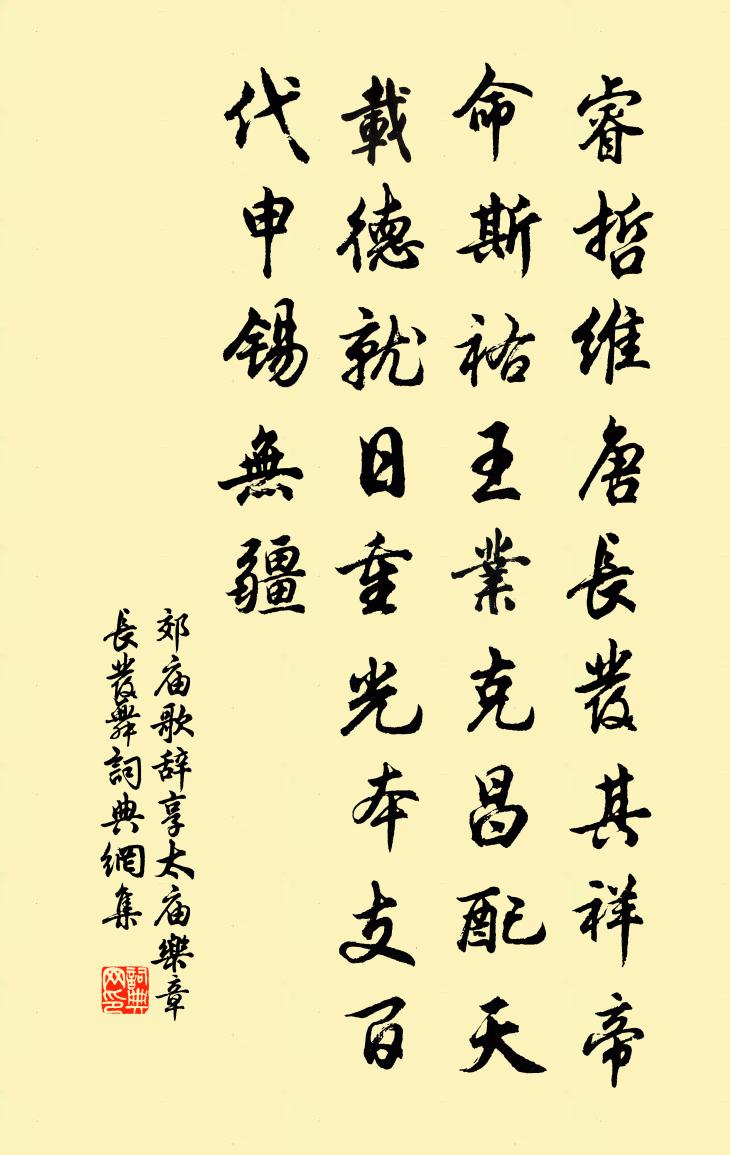 睿哲維唐長發其祥帝
命斯祐王業克昌配天
載德就日重光本支百
代申錫無疆
郊庙歌辞享太庙樂章
長發舞詞典網集
詞典网印